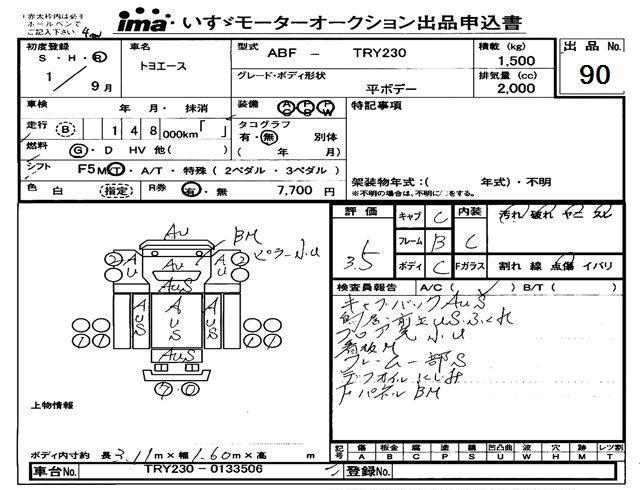 赤太枠内は必ず
ボールペンで
ご記入下さい
ima いすゞモーターオークション出品申込書
初度登録
S・H・R
1/9月
車名
トヨエース
型式 ABF - TRY230
グレード・ボディ形状
平ボデー
積載 (kg)
1,500
排気量 (cc)
2,000
出品 No.
90
車検 年 月・ 抹消
装備 AC PS PW
特記事項
走行 B 148 000km「 」
タコグラフ
有・無 別体
( 年 月)
燃料 G・D HV 他( )
シフト F5 MT・A/T・特殊(2ペダル・3ペダル)
架装物年式:( 年式)・不明
※不明の場合は、不明に○をする。
色 白 指定 R券 有・無 7,700 円
評価
3.5
キャブ C
フレーム B
ボディ C
内装 C
Fガラス
汚れ 破れ ヤニ スレ
割れ 線 点傷 イバリ
検査員報告 A/C ( ) B/T ( )
キャブバックAuS
フロア穴 小U
看板M
フレーム一部S
デフオイルにじみ
FパネルBM
AU
BM
ピラー小U
AU
AU
AuS
AUS
AUS
AUS
AuS
2
2
1 1
1 1
7 0
上物情報
ボディ内寸約 長 3.11m × 幅 1.60m × 高 m
記号 傷 板金 腐 塗 錆 凹凸曲 波 穴 跡 レツ割
A B C P S U W H M T
車台No. TRY230-0133506
登録No.